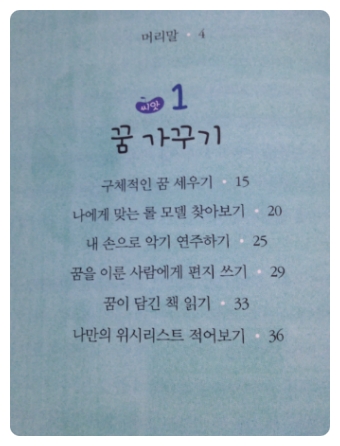 머리말 • 4
씨앗 1
꿈 가꾸기
구체적인 꿈 세우기 • 15
나에게 맞는 롤 모델 찾아보기 • 20
내 손으로 악기 연주하기 • 25
꿈을 이룬 사람에게 편지 쓰기 • 29
꿈이 담긴 책 읽기 • 33
나만의 위시리스트 적어보기 • 36